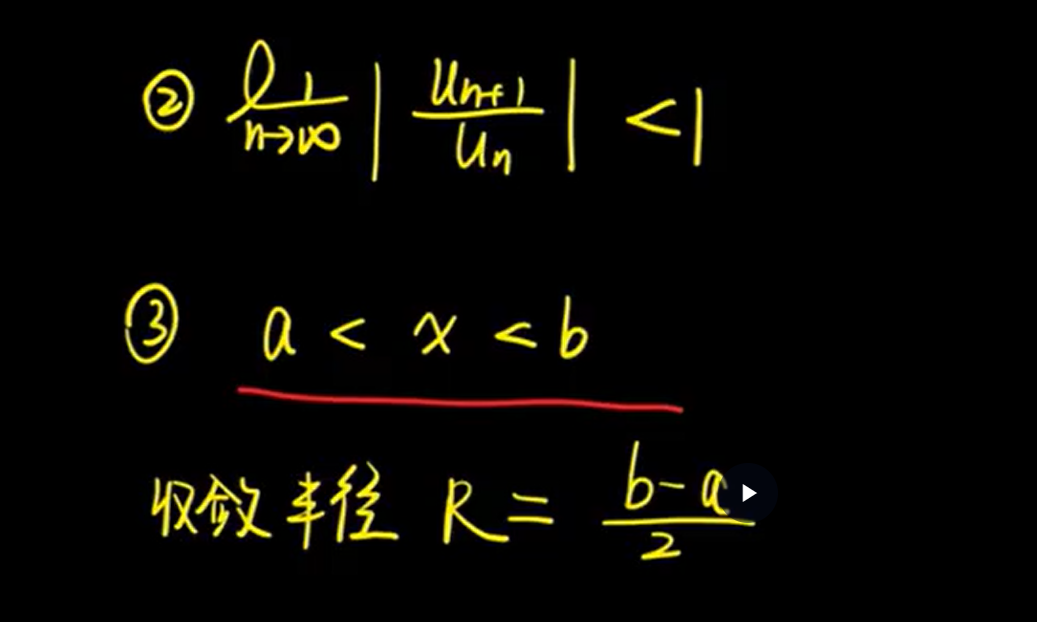 ② lim n→∞ | Un+1 / Un | < 1
③ a < x < b
收敛半径 R = b-a / 2